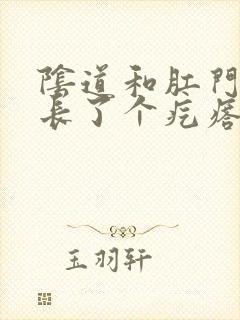 陰道和肛門
長了个疙瘩
玉羽轩